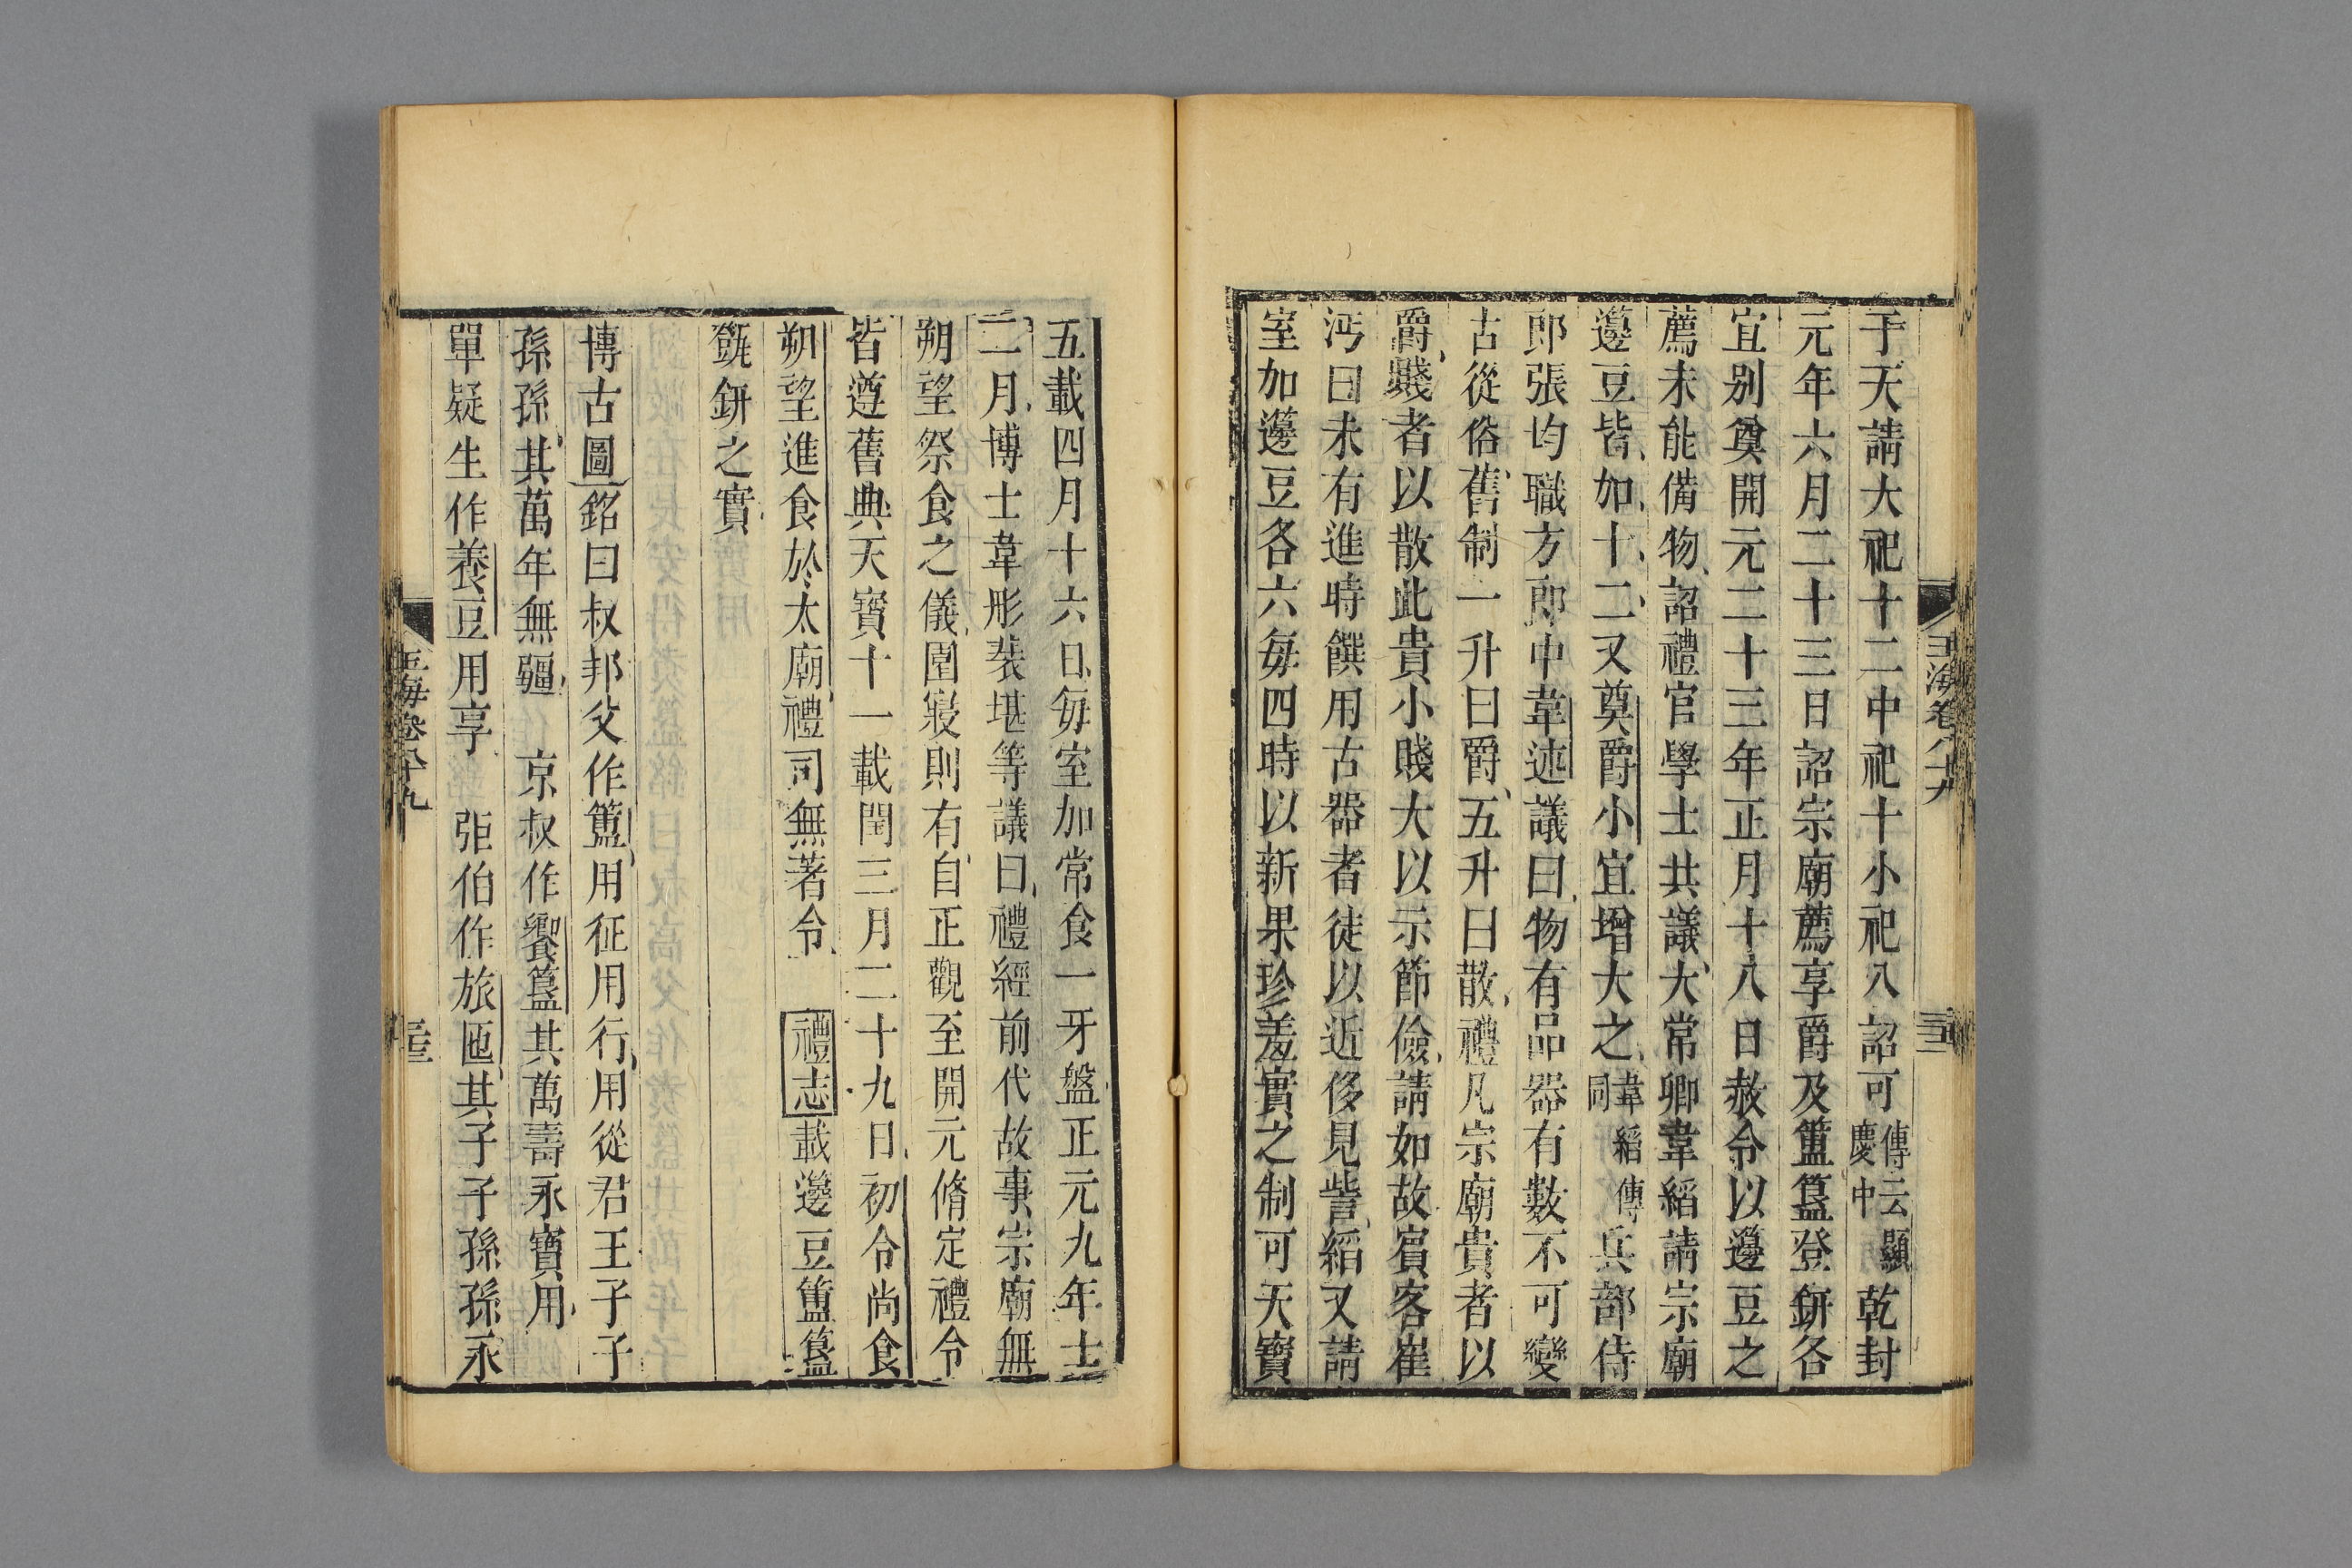 玉海卷八十九
于天請大祀十二中祀十小祀八詔可傳云顯慶中乾封
元年六月二十三日詔宗廟薦享爵及簠簋登鉶各
宜别奠開元二十三年正月十八日赦令以籩豆之
薦未能備物詔禮官學士共議大常卿韋縚請宗廟
籩豆皆加十二又奠爵小宜增大之韋縚傳同兵部侍
郎張均職方郎中韋述議曰物有品器有數不可變
古從俗舊制一升曰爵五升曰散禮凡宗廟貴者以
爵賤者以散此貴小賤大以示節儉請如故賓客崔
沔曰未有進時饌用古器者徒以近侈見訾縚又請
室加籩豆各六每四時以新果珍羞實之制可天寶
五載四月十六日每室加常食一牙盤正元九年士
二月博士韋彤裴堪等議曰禮經前代故事宗廟無
朔望祭食之儀園寢則有自正觀至開元脩定禮令
皆遵舊典天寶十一載閏三月二十九日初令尚食
朔望進食於太廟禮司無著令 禮志載籩豆簠簋
㽅鉶之實
博古圖銘曰叔邦父作簠用征用行用從君王子子
孫孫其萬年無疆 京叔作饗簋其萬壽永寶用
單疑生作養豆用享 弡伯作旅匜其子子孫孫永
玉海卷八十九